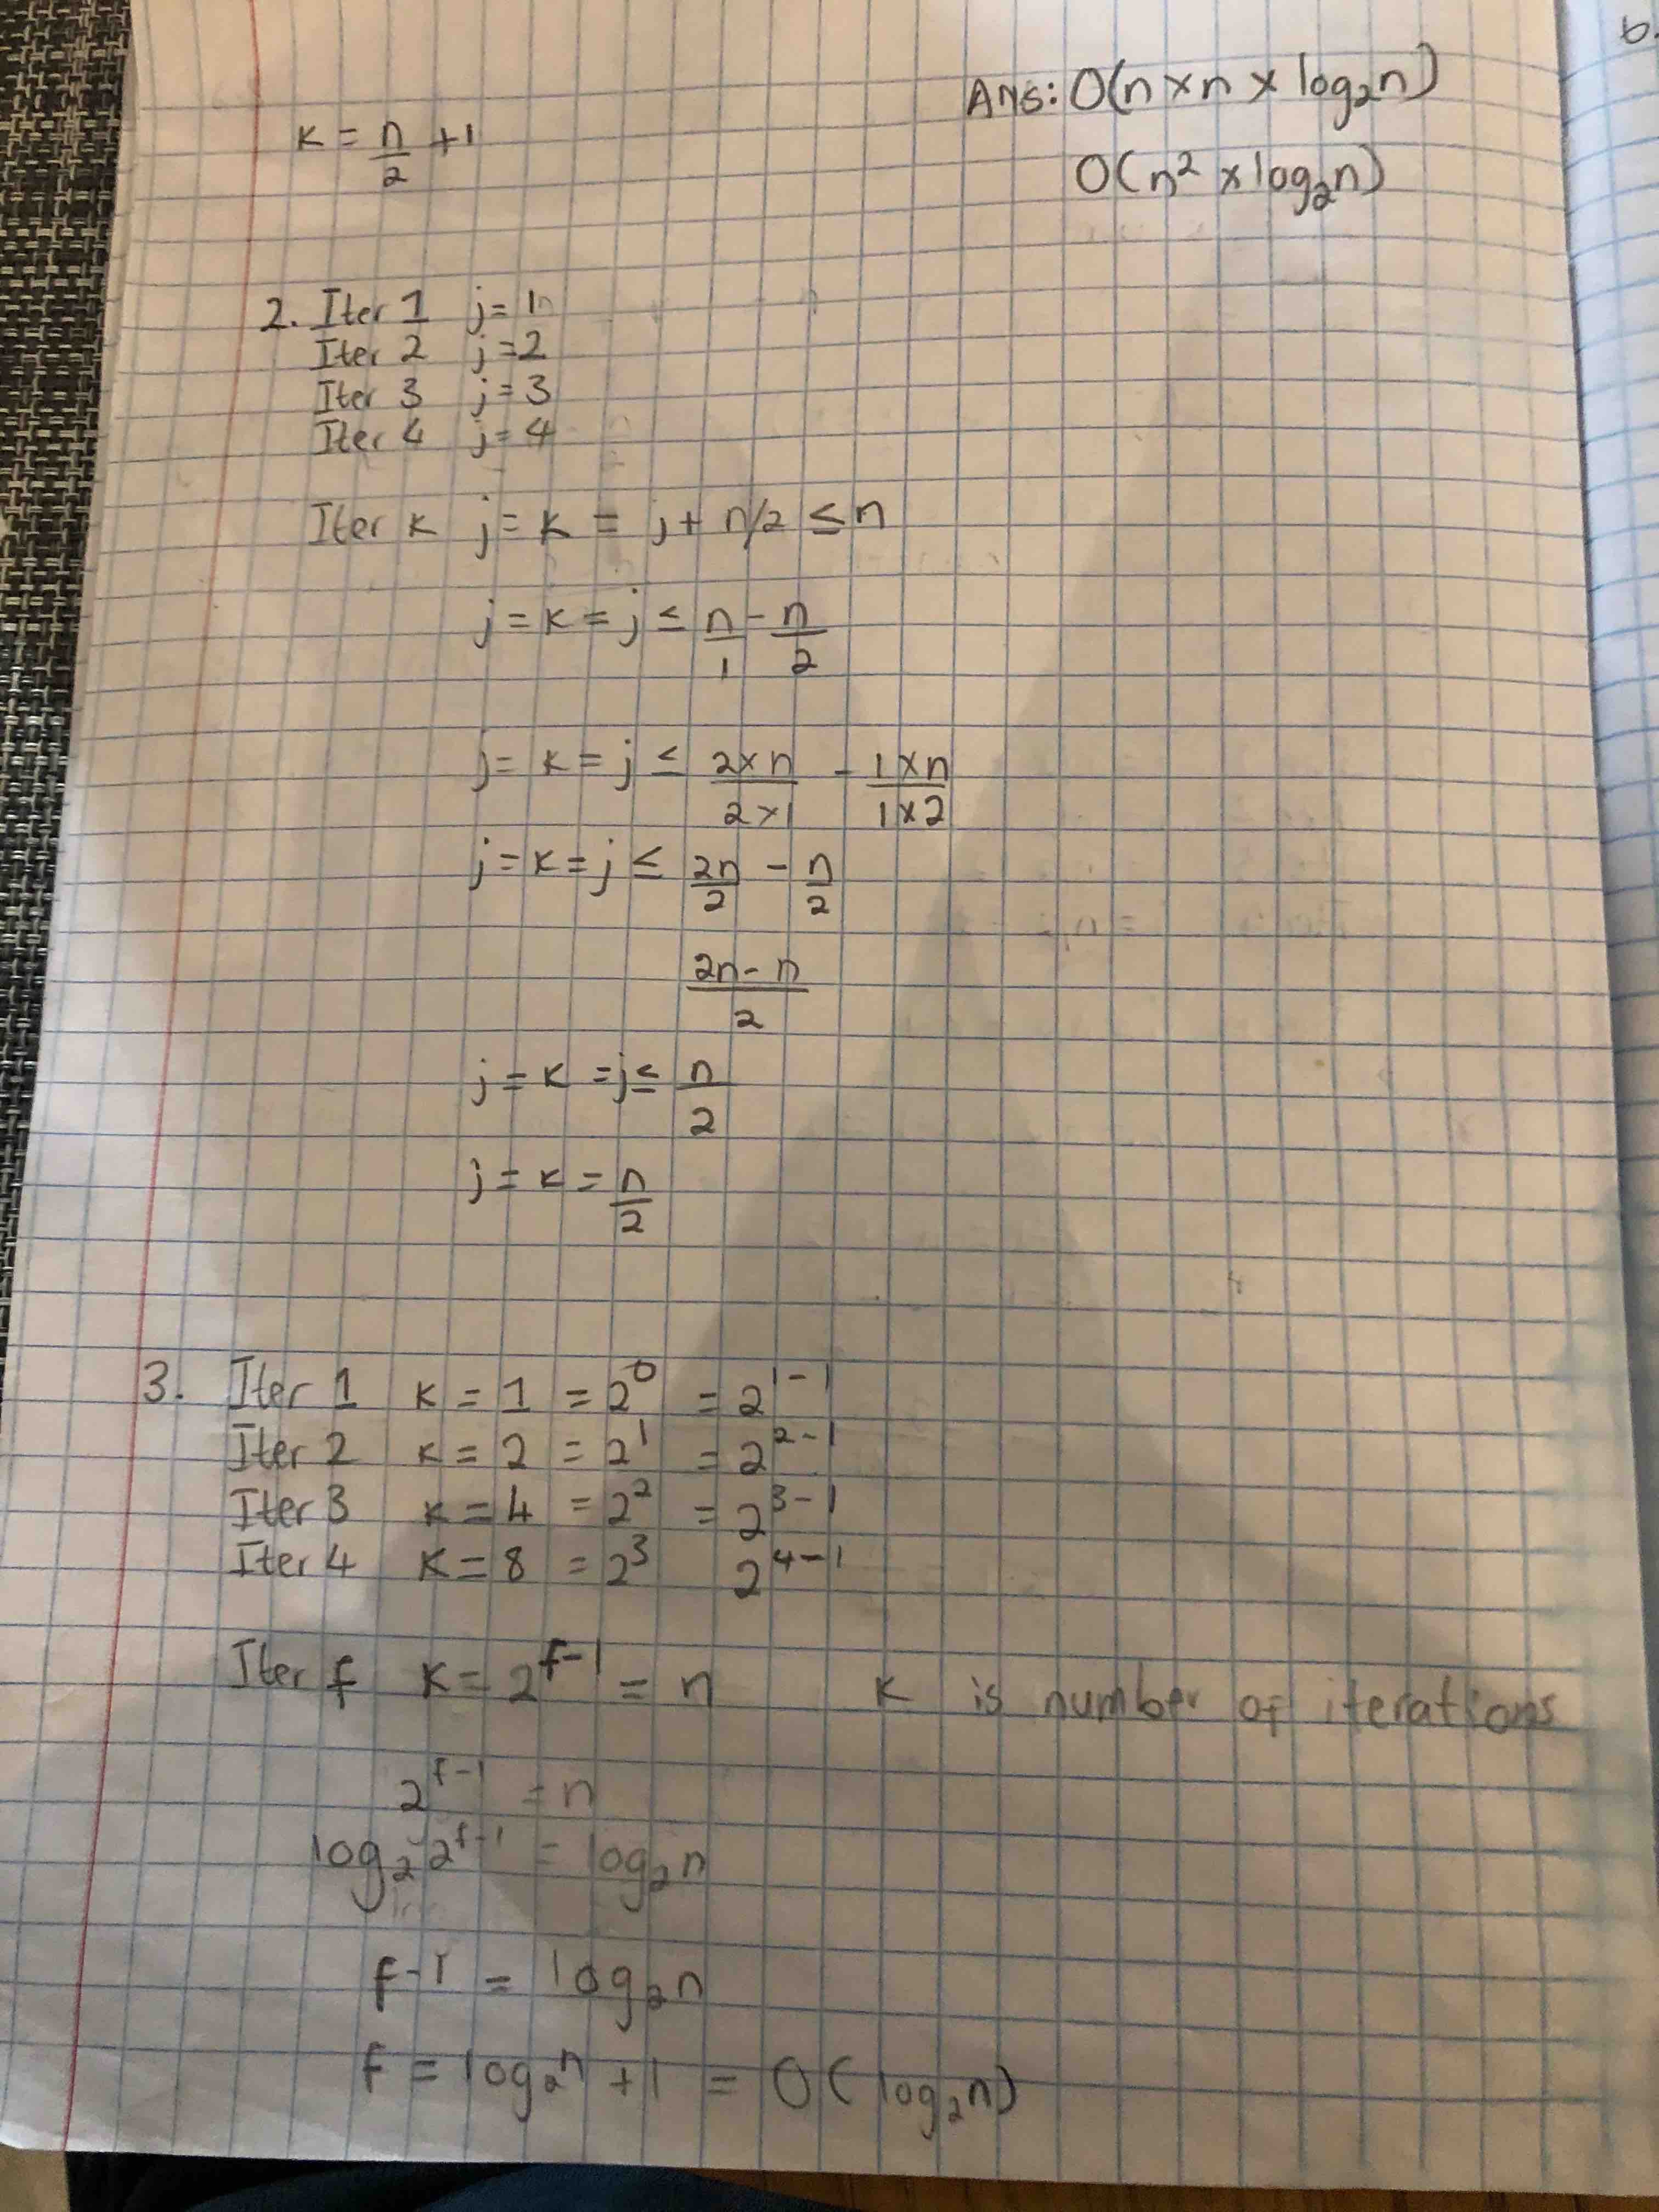 Ans: O(n × n × log₂n)
K = n/2 + 1
O(n² × log₂n)
2. Iter 1 j = 1
Iter 2 j = 2
Iter 3 j = 3
Iter 4 j = 4
Iter K j = K = j + n/2 ≤ n
j = K = j ≤ n/1 - n/2
j = K = j ≤ 2×n/2×1 - 1×n/1×2
j = K = j ≤ 2n/2 - n/2
2n - n/2
j = K = j ≤ n/2
j = K = n/2
3. Iter 1 K = 1 = 2⁰ = 2¹⁻¹
Iter 2 K = 2 = 2¹ = 2²⁻¹
Iter 3 K = 4 = 2² = 2³⁻¹
Iter 4 K = 8 = 2³ 2⁴⁻¹
Iter f K = 2^(f-1) = n K is number of iterations
2^(f-1) = n
log₂ 2^(f-1) = log₂n
f-1 = log₂n
f = log₂n + 1 = O(log₂n)